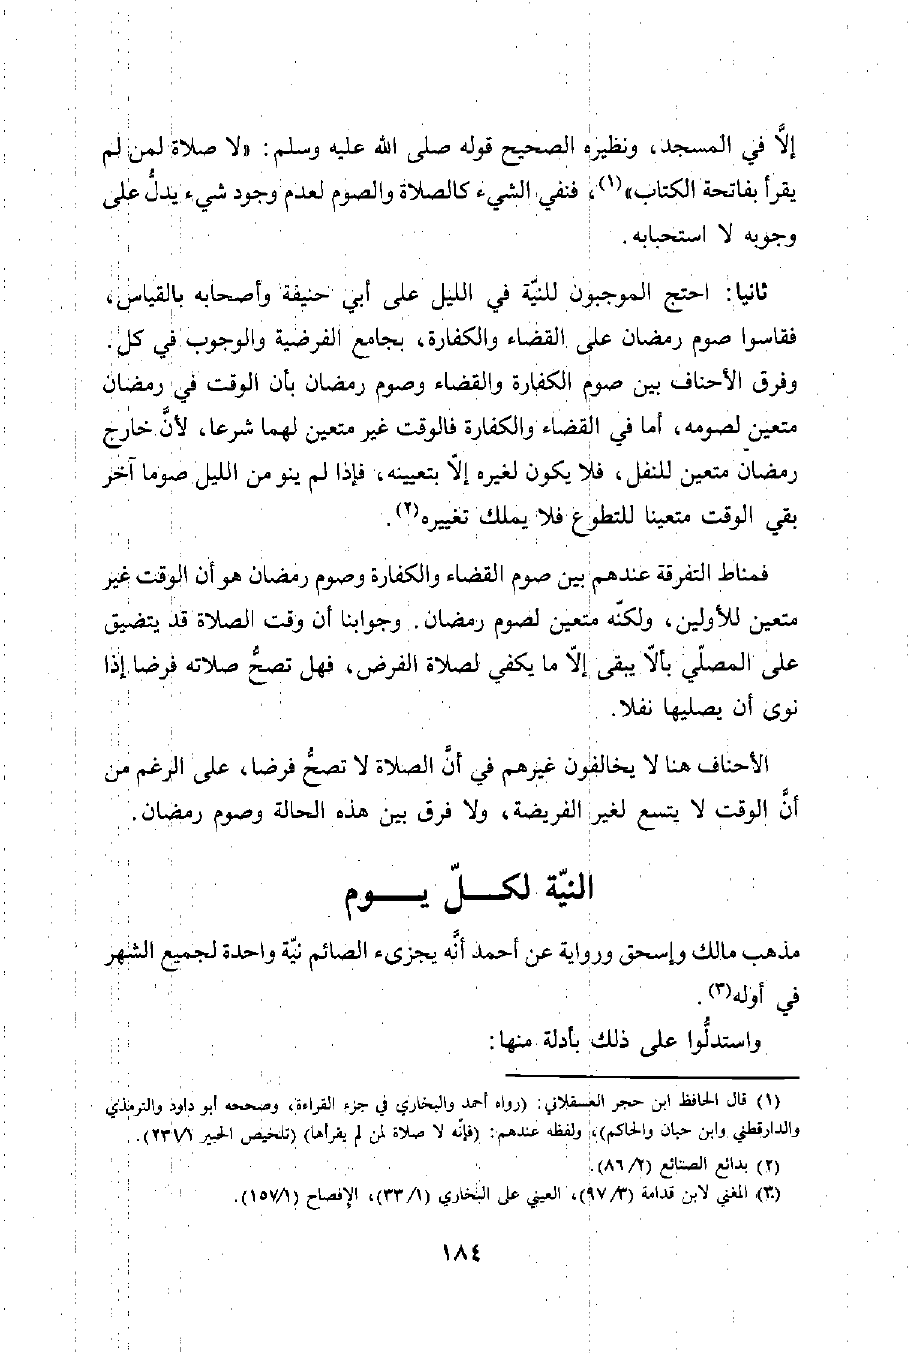 إلاَّ في المسجد، ونظيره الصحيح قوله صلى الله عليه وسلم: «لا صلاة لمن لم
يقرأ بفاتحة الكتاب»(١)، فنفي الشيء كالصلاة والصوم لعدم وجود شيء يدلُّ على
وجوبه لا استحبابه.
ثانيا: احتج الموجبون للنيّة في الليل على أبي حنيفة وأصحابه بالقياس،
فقاسوا صوم رمضان على القضاء والكفارة، بجامع الفرضية والوجوب في كل.
وفرق الأحناف بين صوم الكفارة والقضاء وصوم رمضان بأن الوقت في رمضان
متعين لصومه، أما في القضاء والكفارة فالوقت غير متعين لهما شرعا، لأنَّ خارج
رمضان متعين للنفل، فلا يكون لغيره إلاّ بتعيينه، فإذا لم ينو من الليل صوما آخر
بقي الوقت متعينا للتطوع فلا يملك تغييره(٢).
فمناط التفرقة عندهم بين صوم القضاء والكفارة وصوم رمضان هو أن الوقت غير
متعين للأولين، ولكنّه متعين لصوم رمضان. وجوابنا أن وقت الصلاة قد يتضيق
على المصلّي بألاّ يبقى إلاّ ما يكفي لصلاة الفرض، فهل تصحُّ صلاته فرضا إذا
نوى أن يصليها نفلا.
الأحناف هنا لا يخالفون غيرهم في أنَّ الصلاة لا تصحُّ فرضا، على الرغم من
أنَّ الوقت لا يتسع لغير الفريضة، ولا فرق بين هذه الحالة وصوم رمضان.
النيّة لكـــلّ يـــوم
مذهب مالك وإسحق ورواية عن أحمد أنَّه يجزىء الصائم نيّة واحدة لجميع الشهر
في أوله(٣).
واستدلُّوا على ذلك بأدلة منها:
(١) قال الحافظ ابن حجر العسقلاني: (رواه أحمد والبخاري في جزء القراءة، وصححه أبو داود والترمذي
والدارقطني وابن حبان والحاكم)، ولفظه عندهم: (فإنّه لا صلاة لمن لم يقرأها) (تلخيص الحبير ٢٣١/١).
(٢) بدائع الصنائع (٨٦/٢).
(٣) المغني لابن قدامة (٩٧/٣)، العيني على البخاري (٣٣/١)، الإفصاح (١٥٧/١).
١٨٤